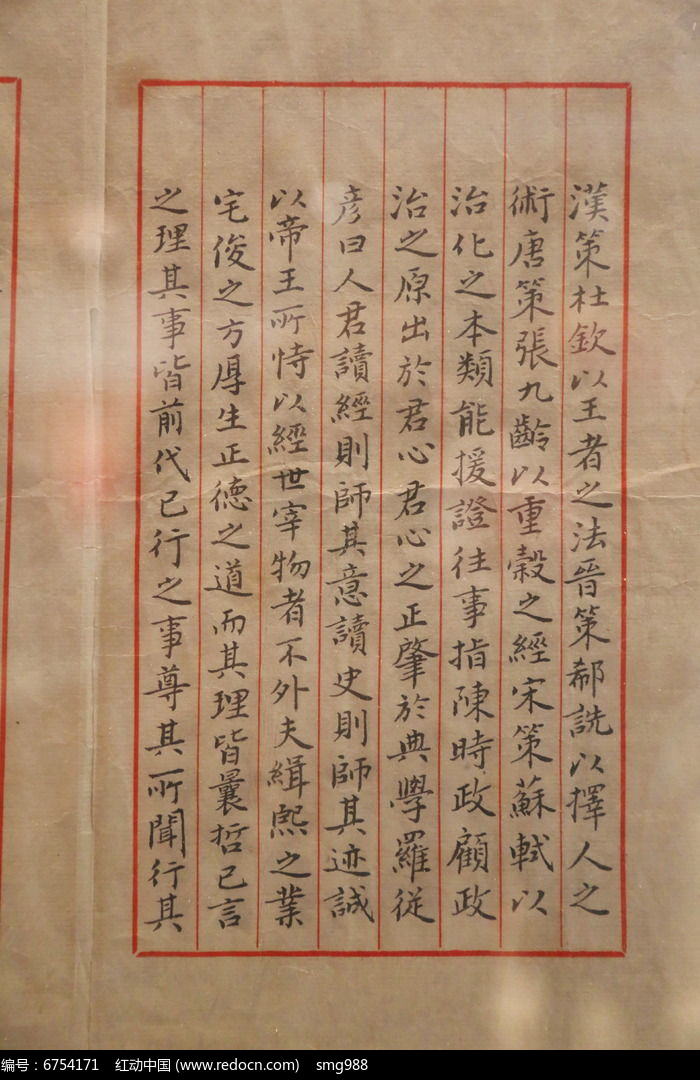 漢策杜欽以王者之法晉策郗詵以擇人之
術唐策張九齡以重穀之經宋策蘇軾以
治化之本類能援證往事指陳時政顧政
治之原出於君心君心之正肇於典學羅從
彦曰人君讀經則師其意讀史則師其迹誠
以帝王所恃以經世宰物者不外夫緝熙之業
宅俊之方厚生正德之道而其理皆曩哲已言
之理其事皆前代已行之事尊其所聞行其
编号：6754171 红动中国 (www.redocn.com) smg988